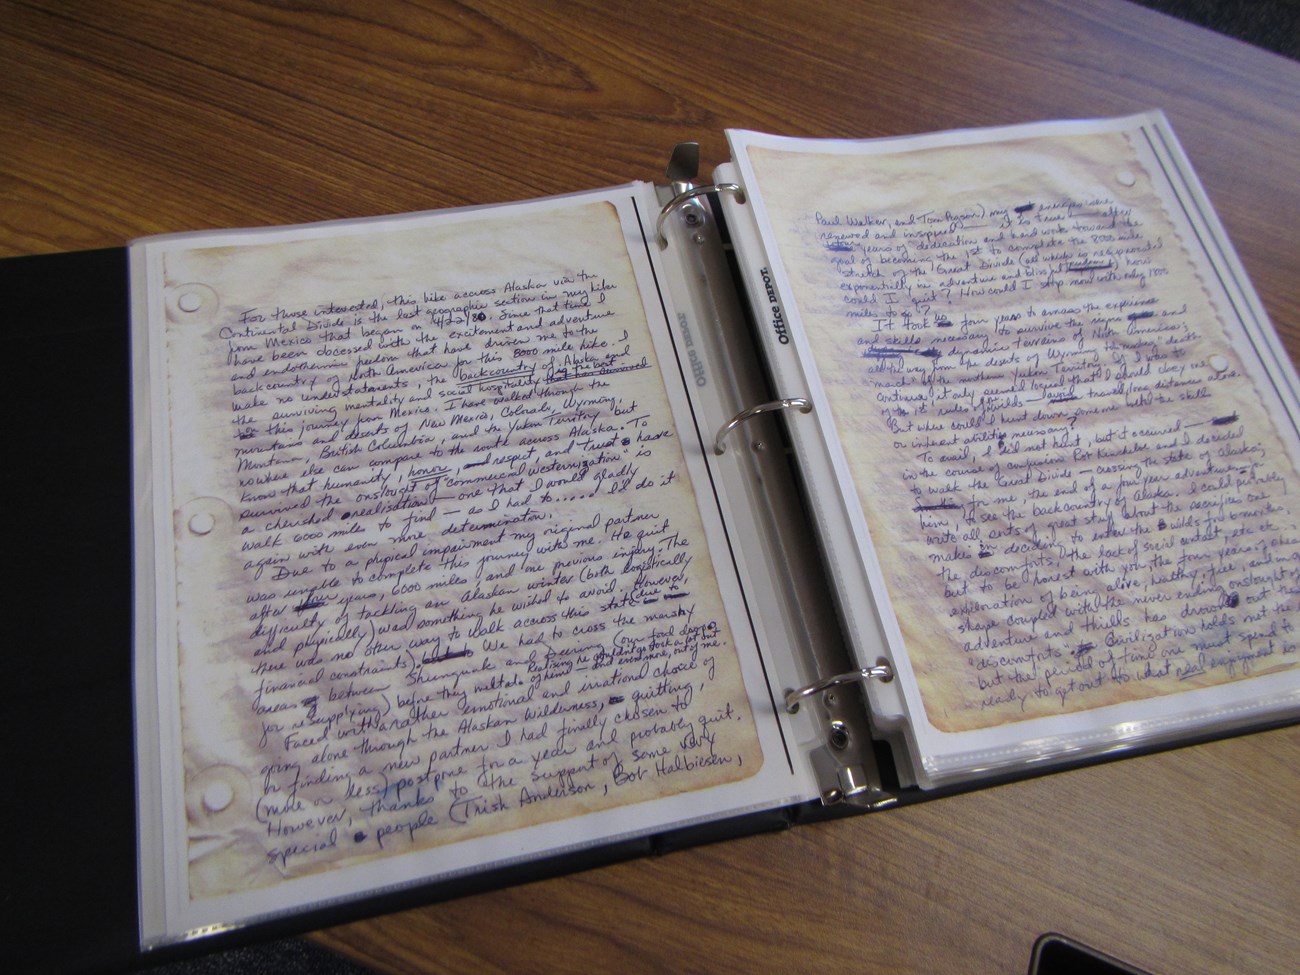 For those interested, this hike across Alaska via the
Continental Divide is the last geographic section in my hike
from Mexico that began on 4/22/80. Since that time I
have been obcessed with the excitement and adventure
and endothermic freedom that have driven me to the
backcountry of North America for this 8000 mile hike. I
make no understatements, the backcountry of Alaska and
the surviving mentality and social hospitality
this journey from Mexico. I have walked through the
mountains and deserts of New Mexico, Colorado, Wyoming,
Montana, British Columbia, and the Yukon Territory but
nowhere else can compare to the walk across Alaska. To
know that humanity, honor, respect and trust have
survived the onslought of "commercial westernization" is
a cherished realisation — one that I would gladly
walk 6000 miles to find — as I had to...... I'd do it
again with even more determination.
Due to a physical impairment my original partner
was unable to complete this journey with me. He quit
after years, 6000 miles, and one previous injury. The
difficulty of tackling an Alaskan winter (both logistically
and physically) was something he wished to avoid. However,
there was no other way to walk across this state (due to
financial constraints). We had to cross the marshy
areas between Shungnak and Deering (our food drop
you resupplying) before they melted. Realising he wouldn't go took a lot out
of him — and even more, out of me.
Faced with a rather emotional and irrational choice of
going alone through the Alaskan Wilderness, quitting,
or finding a new partner I had finally chosen to
(more or less) postpone for a year and probably quit.
However, thanks to the support of some very
special people (Trish Anderson, Bob Halbiesen,
Office DEPOT
Office DEPOT
Paul Walker, and Tom Ryson) my energies were
renewed and inspired it is true after
years of dedication and hard work toward the
goal of becoming the 1st to complete the 8000 mile
stretch of the Great Divide (all which is reciprocated
exponentially in adventure and blissful) how
could I quit? How could I stop now with only 1000
miles to go?
It took four years to amass the experience
and skills necessary to survive the rigors and
dynamic terrains of North America;
all the way from the deserts of Wyoming to "winter death
march" of the northern Yukon Territory. If I was to
continue, it only seemed logical that I should obey one
of the 1st rules of wilds — travel long distances alone.
But where could I hunt down someone with the skills
or inherent abilities necessary?
To avail, I did not hunt, but it occurred —
in the course of confusion Rob Kunkel and I decided
to walk the Great Divide — crossing the state of Alaska;
for me, the end of a four year adventure — for
him, to see the backcountry of Alaska. I could probably
write all sorts of great stuff about the sacrifices one
makes in deciding to enter the wilds for months,
the discomforts, the lack of social contact, etc etc
but to be honest with you, the four years
exploration of being alive, healthy, free, and in
shape coupled with the never ending onslought of
adventure and thrills has drowned out the
discomforts. Civilization holds not the
but the period of time one must spend to
ready to get out to what real enjoyment is